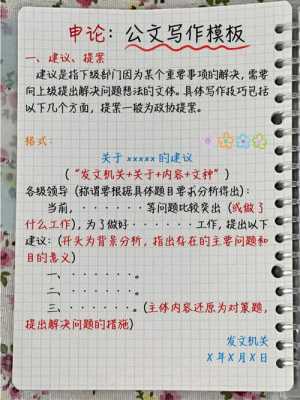 申论：公文写作模板
一、建议、提案
建议是指下级部门因为某个重要事项的解决，需要
向上级提出解决问题想法的文体。具体写作技巧包括
以下几个方面，提案一般为政协提案。
格式：
关于xxxxx的建议
（“发文机关+关于+内容+文种”）
各级领导（称谓要根据具体题目要求分析得出）：
当前，······等问题比较突出（或做了
什么工作），为了做好······工作，提出以下
建议：（开头为背景分析，指出存在的主要问题和
目的意义）
一、······。
二、······。
三、······。（主体内容还原为对策题，
提出解决问题的措施）
发文机关
X年X月X日